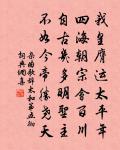 我皇膺运太平年
四海朝宗会百川
自古几多明圣主
不如今帝胜尧天
杂曲歌辞太和第五彻
词典网喜